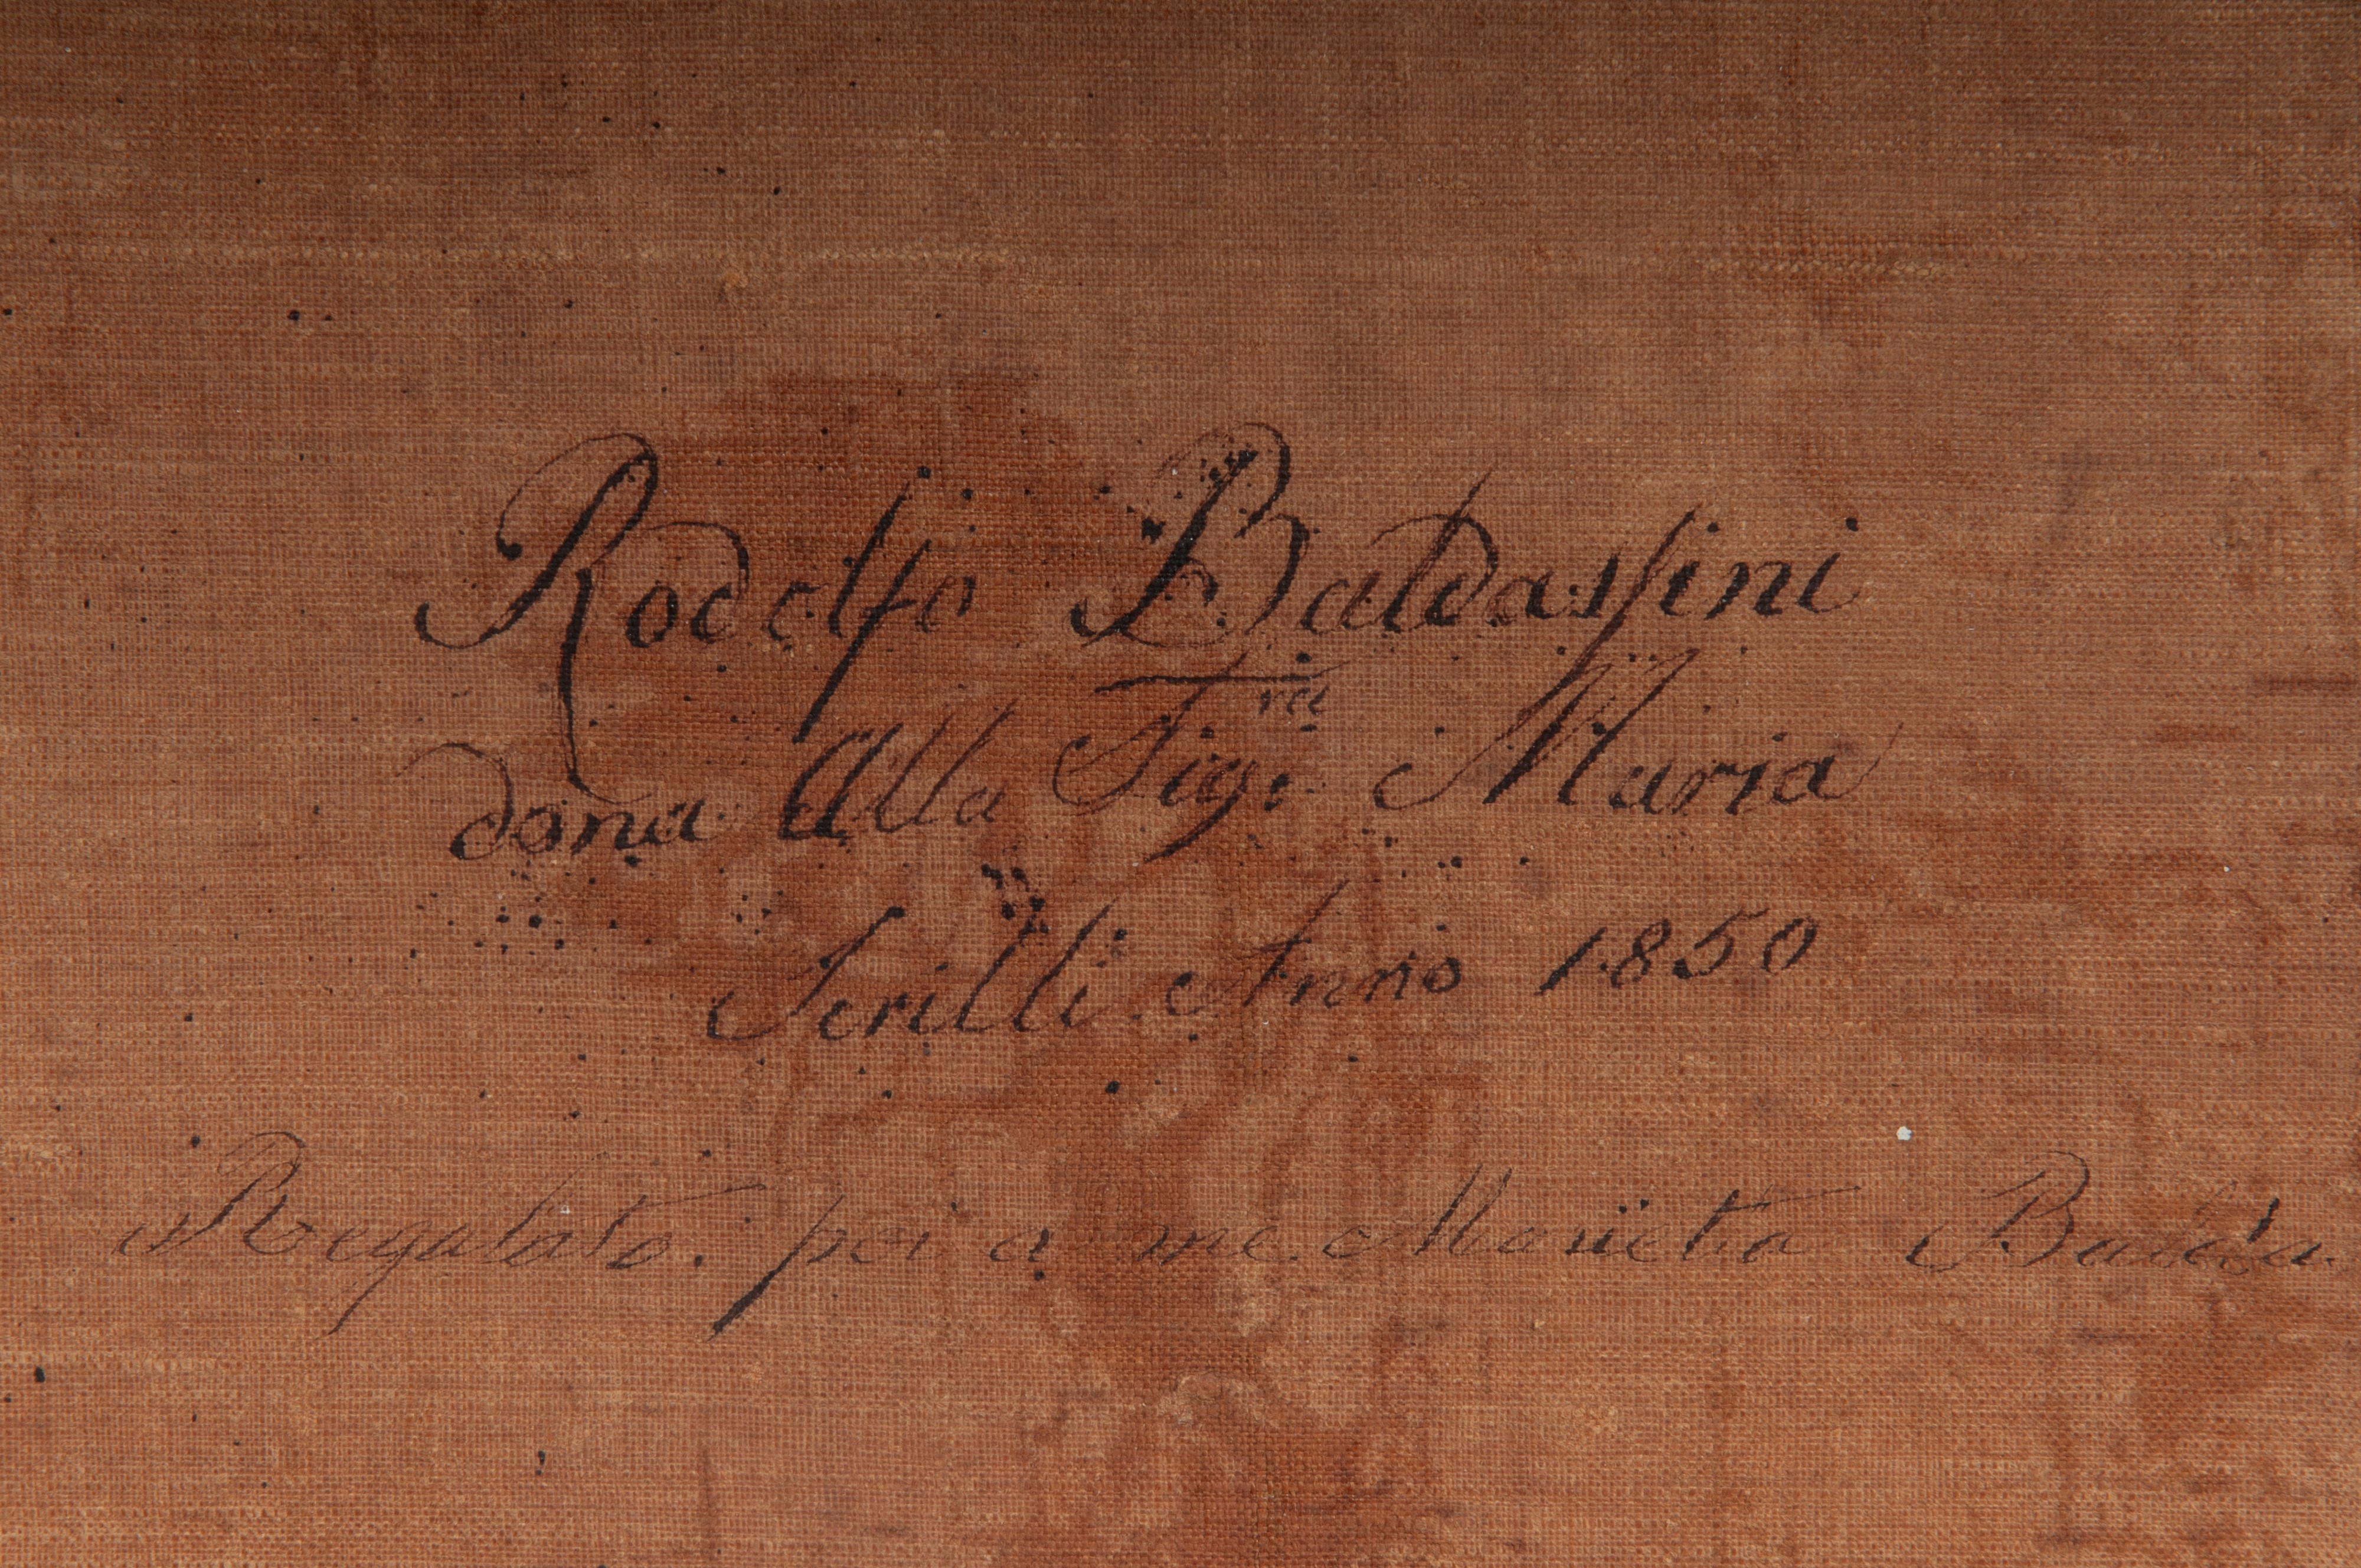 Rodolfo Baldassini
dona alla Sig.ra Maria
Scrilli Anno 1850
Regalato. poi a me. Marietta Balda.